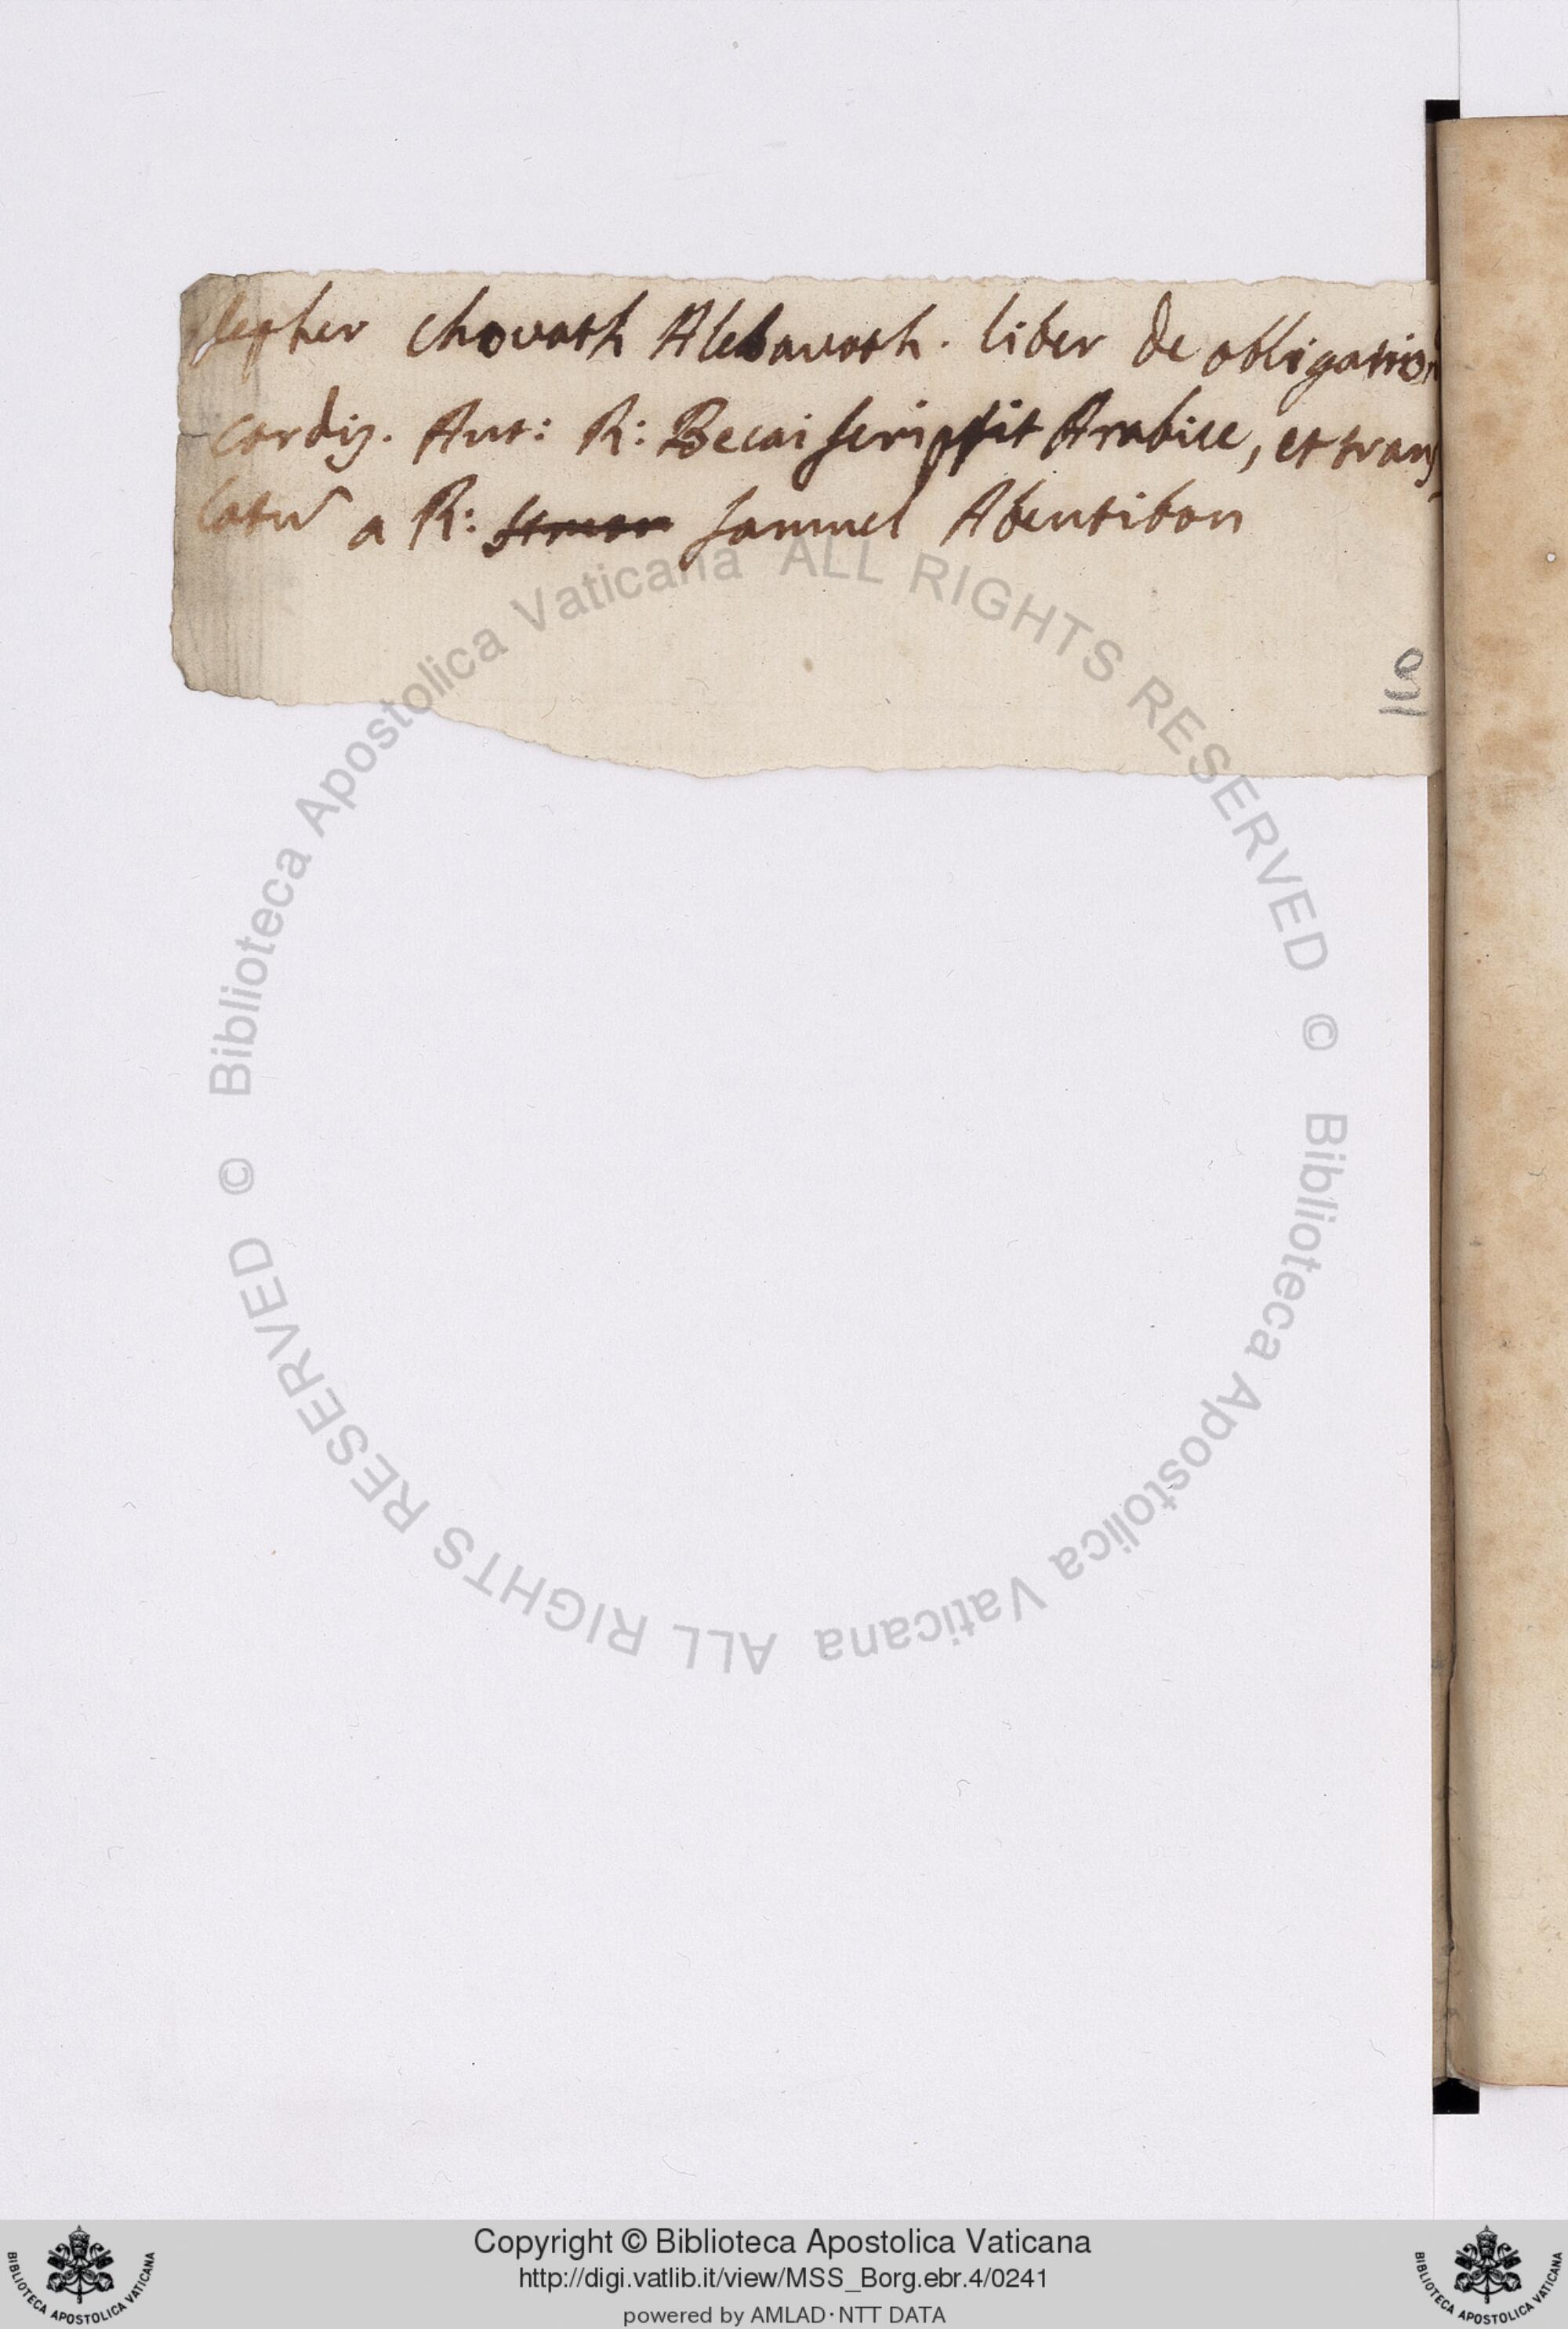 Sepher chovath Alebavoth. liber de obligation
cordis. Aut: R: Becai scripsit Arabice, et trans
latū a R: Samuel Abentibon
Biblioteca Apostolica Vaticana ALL RIGHTS RESERVED ©
Biblioteca Apostolica Vaticana ALL RIGHTS RESERVED ©
Copyright © Biblioteca Apostolica Vaticana
http://digi.vatlib.it/view/MSS_Borg.ebr.4/0241
powered by AMLAD·NTT DATA
BIBLIOTECA APOSTOLICA VATICANA
BIBLIOTECA APOSTOLICA VATICANA